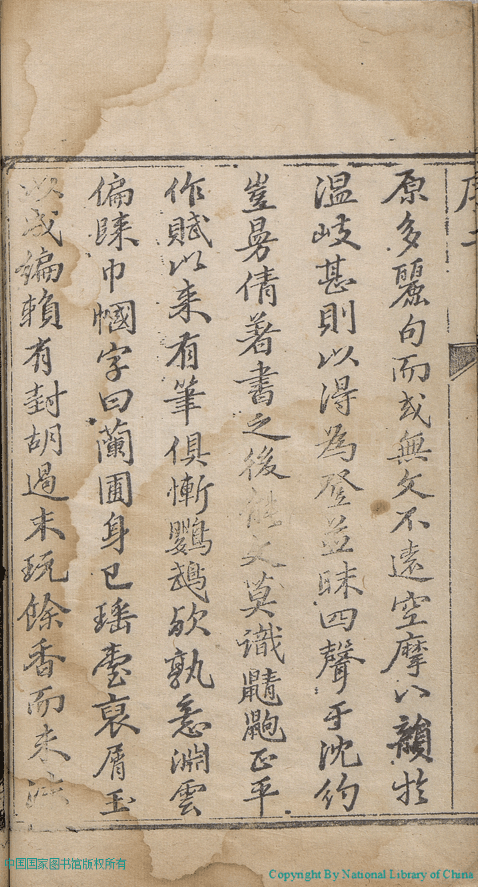 序二
原多麗句而或無文不遠空摩八韻於
温岐甚則以淂為登並昧四聲于沈約
豈曼倩著書之後能文莫識鼱鼩正平
作賦以来有筆俱慚鸚鵡欤孰意淵雲
偏隸巾幗字曰蘭圃身已瑶臺裒屑玉
以成编賴有封胡遏末玩餘香而未泯
中国国家图书馆版权所有
Copyright By National Library of China